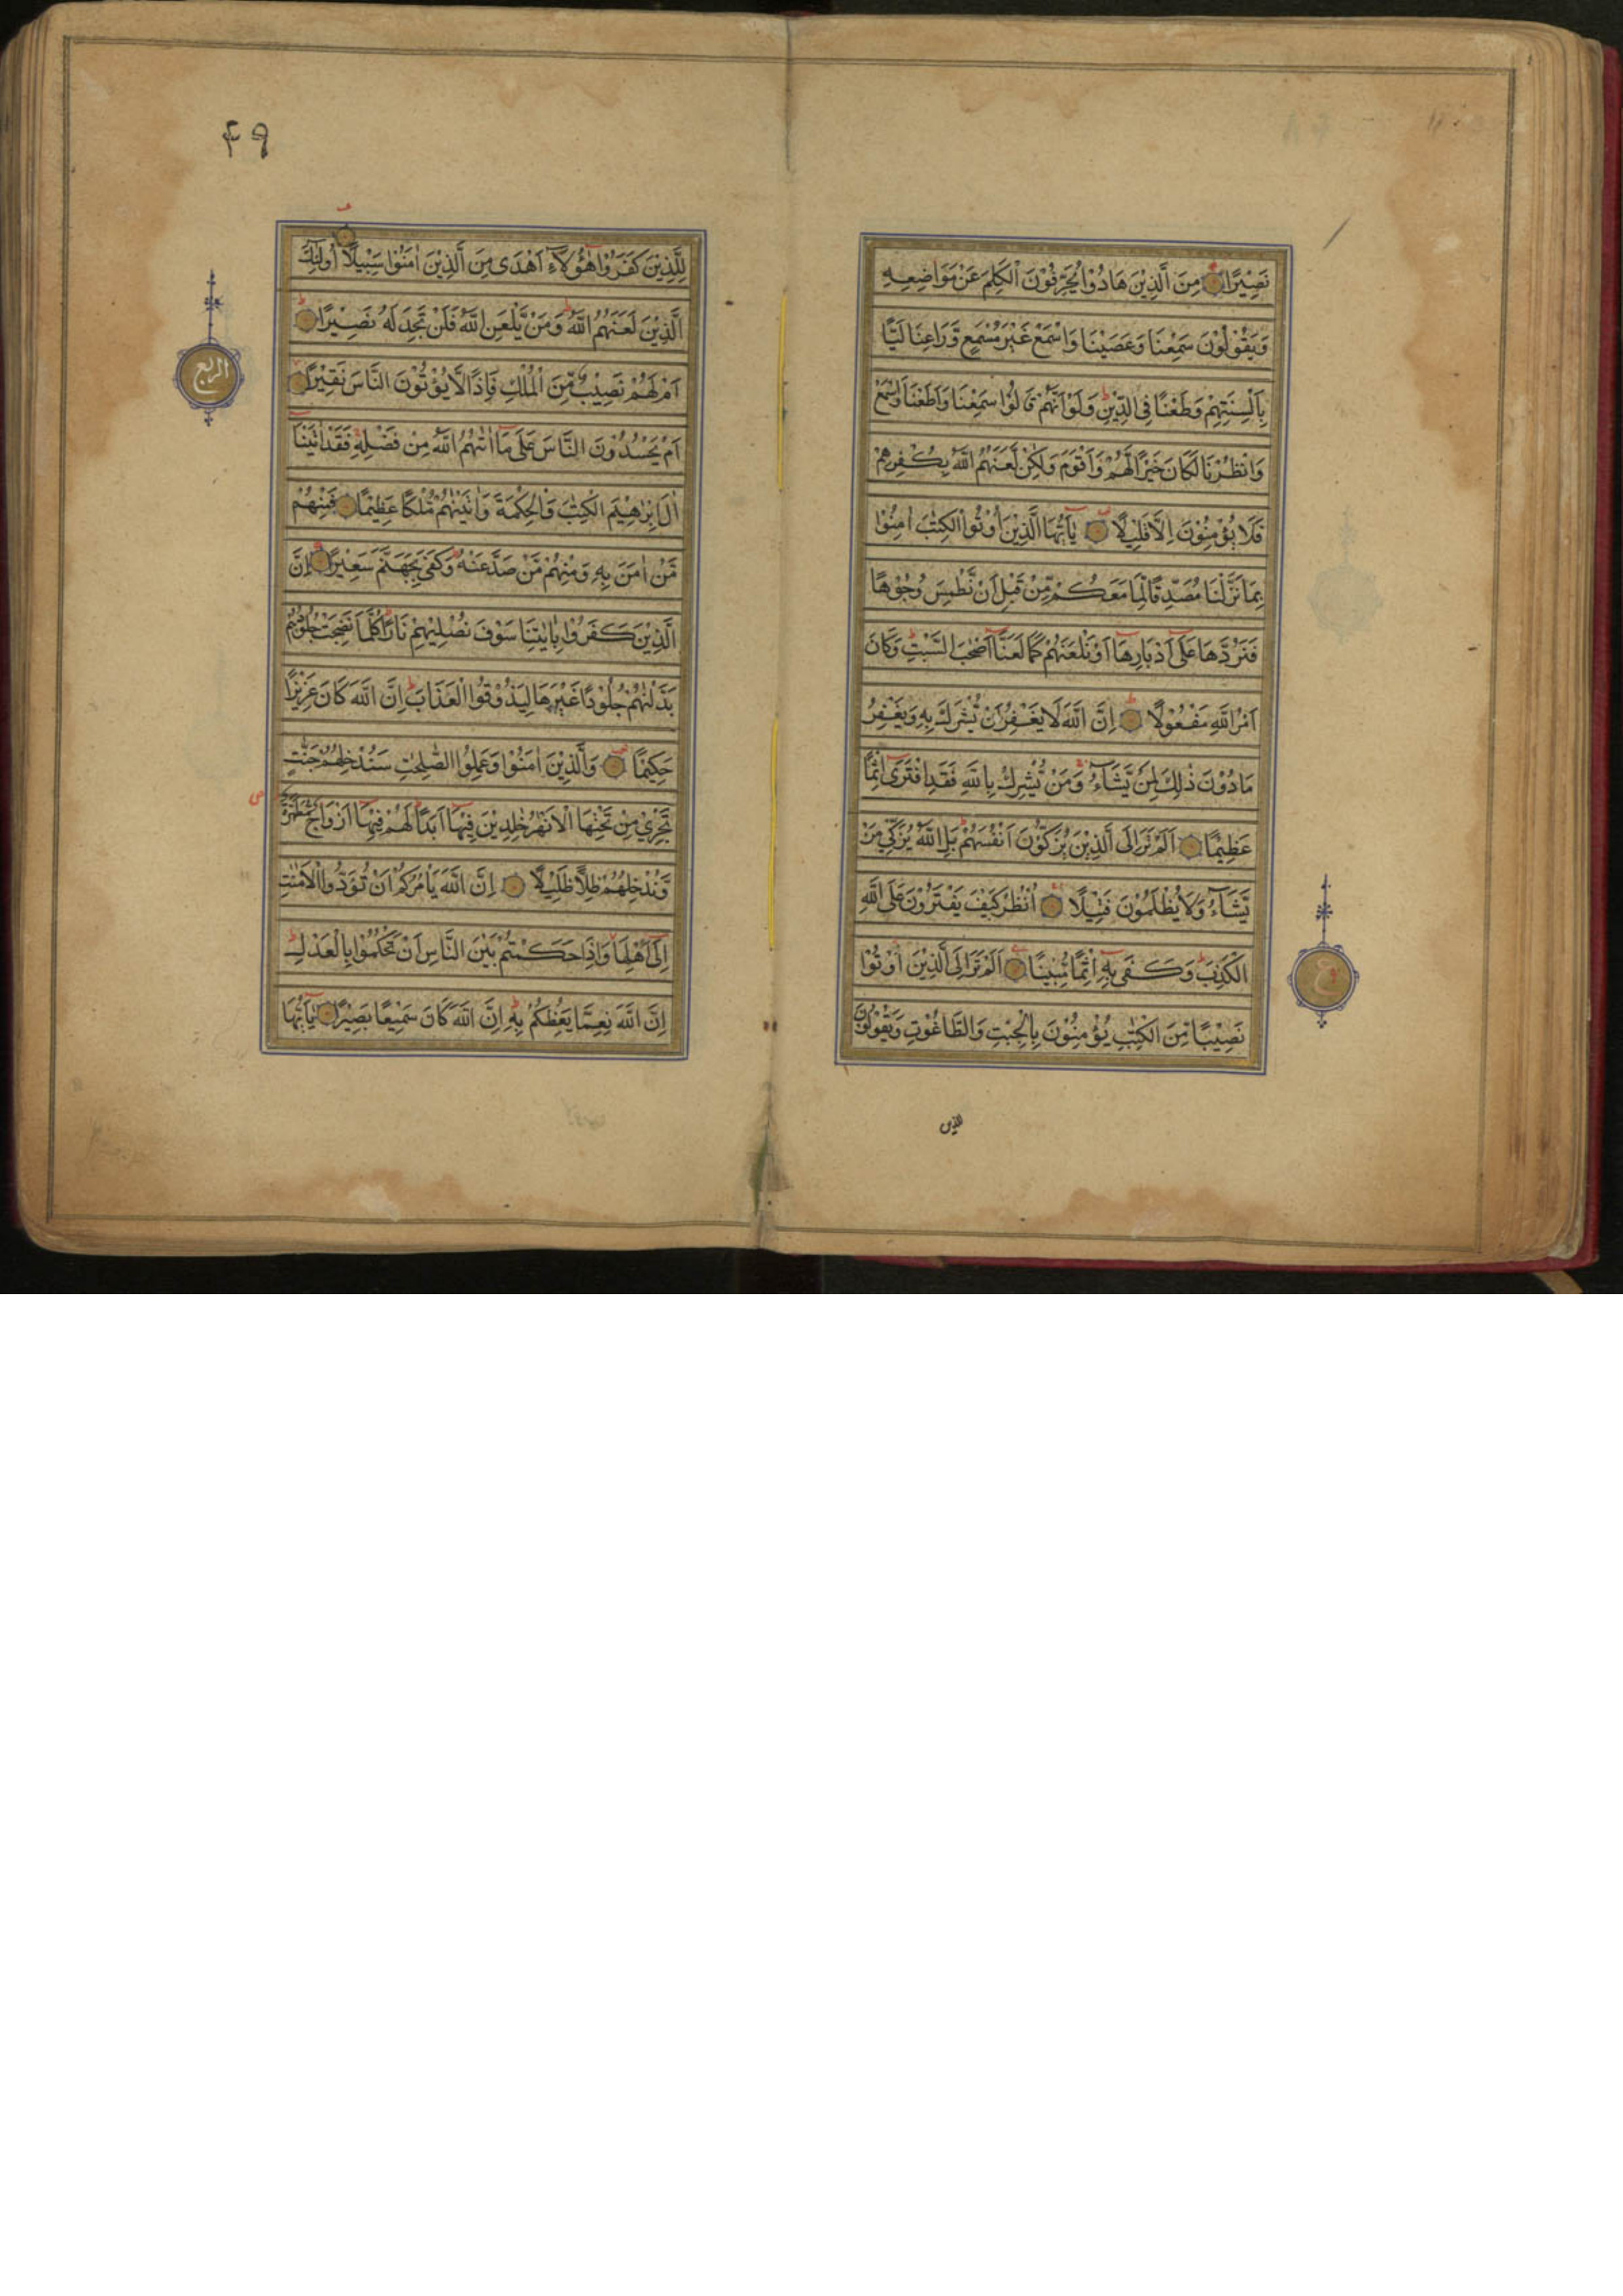 نَصِيْرًا مِنَ الَّذِيْنَ هَادُوْا يُحَرِّفُوْنَ الْكَلِمَ عَنْ مَوَاضِعِهِ
وَيَقُوْلُوْنَ سَمِعْنَا وَعَصَيْنَا وَاسْمَعْ غَيْرَ مُسْمَعٍ وَّرَاعِنَا لَيًّا
بِاَلْسِنَتِهِمْ وَطَعْنًا فِي الدِّيْنِ وَلَوْ اَنَّهُمْ قَالُوْا سَمِعْنَا وَاَطَعْنَا وَاسْمَعْ
وَانْظُرْنَا لَكَانَ خَيْرًا لَّهُمْ وَاَقْوَمَ وَلٰكِنْ لَعَنَهُمُ اللّٰهُ بِكُفْرِهِمْ
فَلَا يُؤْمِنُوْنَ اِلَّا قَلِيْلًا يٰاَيُّهَا الَّذِيْنَ اُوْتُوا الْكِتٰبَ اٰمِنُوْا
بِمَا نَزَّلْنَا مُصَدِّقًا لِّمَا مَعَكُمْ مِّنْ قَبْلِ اَنْ نَّطْمِسَ وُجُوْهًا
فَنَرُدَّهَا عَلٰى اَدْبَارِهَا اَوْ نَلْعَنَهُمْ كَمَا لَعَنَّا اَصْحٰبَ السَّبْتِ وَكَانَ
اَمْرُ اللّٰهِ مَفْعُوْلًا اِنَّ اللّٰهَ لَا يَغْفِرُ اَنْ يُّشْرَكَ بِهِ وَيَغْفِرُ
مَا دُوْنَ ذٰلِكَ لِمَنْ يَّشَآءُ وَمَنْ يُّشْرِكْ بِاللّٰهِ فَقَدِ افْتَرٰى اِثْمًا
عَظِيْمًا اَلَمْ تَرَ اِلَى الَّذِيْنَ يُزَكُّوْنَ اَنْفُسَهُمْ بَلِ اللّٰهُ يُزَكِّيْ مَنْ
يَّشَآءُ وَلَا يُظْلَمُوْنَ فَتِيْلًا اُنْظُرْ كَيْفَ يَفْتَرُوْنَ عَلَى اللّٰهِ
الْكَذِبَ وَكَفٰى بِهِ اِثْمًا مُّبِيْنًا اَلَمْ تَرَ اِلَى الَّذِيْنَ اُوْتُوْا
نَصِيْبًا مِّنَ الْكِتٰبِ يُؤْمِنُوْنَ بِالْجِبْتِ وَالطَّاغُوْتِ وَيَقُوْلُوْنَ
ع
للذين
۴۹
لِلَّذِيْنَ كَفَرُوْا هٰؤُلَآءِ اَهْدٰى مِنَ الَّذِيْنَ اٰمَنُوْا سَبِيْلًا اُولٰئِكَ
الَّذِيْنَ لَعَنَهُمُ اللّٰهُ وَمَنْ يَّلْعَنِ اللّٰهُ فَلَنْ تَجِدَ لَهُ نَصِيْرًا
اَمْ لَهُمْ نَصِيْبٌ مِّنَ الْمُلْكِ فَاِذًا لَّا يُؤْتُوْنَ النَّاسَ نَقِيْرًا
اَمْ يَحْسُدُوْنَ النَّاسَ عَلٰى مَا اٰتٰهُمُ اللّٰهُ مِنْ فَضْلِهِ فَقَدْ اٰتَيْنَا
اٰلَ اِبْرٰهِيْمَ الْكِتٰبَ وَالْحِكْمَةَ وَاٰتَيْنٰهُمْ مُّلْكًا عَظِيْمًا فَمِنْهُمْ
مَّنْ اٰمَنَ بِهِ وَمِنْهُمْ مَّنْ صَدَّ عَنْهُ وَكَفٰى بِجَهَنَّمَ سَعِيْرًا اِنَّ
الَّذِيْنَ كَفَرُوْا بِاٰيٰتِنَا سَوْفَ نُصْلِيْهِمْ نَارًا كُلَّمَا نَضِجَتْ جُلُوْدُهُمْ
بَدَّلْنٰهُمْ جُلُوْدًا غَيْرَهَا لِيَذُوْقُوا الْعَذَابَ اِنَّ اللّٰهَ كَانَ عَزِيْزًا
حَكِيْمًا وَالَّذِيْنَ اٰمَنُوْا وَعَمِلُوا الصّٰلِحٰتِ سَنُدْخِلُهُمْ جَنّٰتٍ
تَجْرِيْ مِنْ تَحْتِهَا الْاَنْهٰرُ خٰلِدِيْنَ فِيْهَا اَبَدًا لَهُمْ فِيْهَا اَزْوَاجٌ مُّطَهَّرَةٌ
وَّنُدْخِلُهُمْ ظِلًّا ظَلِيْلًا اِنَّ اللّٰهَ يَاْمُرُكُمْ اَنْ تُؤَدُّوا الْاَمٰنٰتِ
اِلٰى اَهْلِهَا وَاِذَا حَكَمْتُمْ بَيْنَ النَّاسِ اَنْ تَحْكُمُوْا بِالْعَدْلِ
اِنَّ اللّٰهَ نِعِمَّا يَعِظُكُمْ بِهِ اِنَّ اللّٰهَ كَانَ سَمِيْعًا بَصِيْرًا يٰاَيُّهَا
الربع